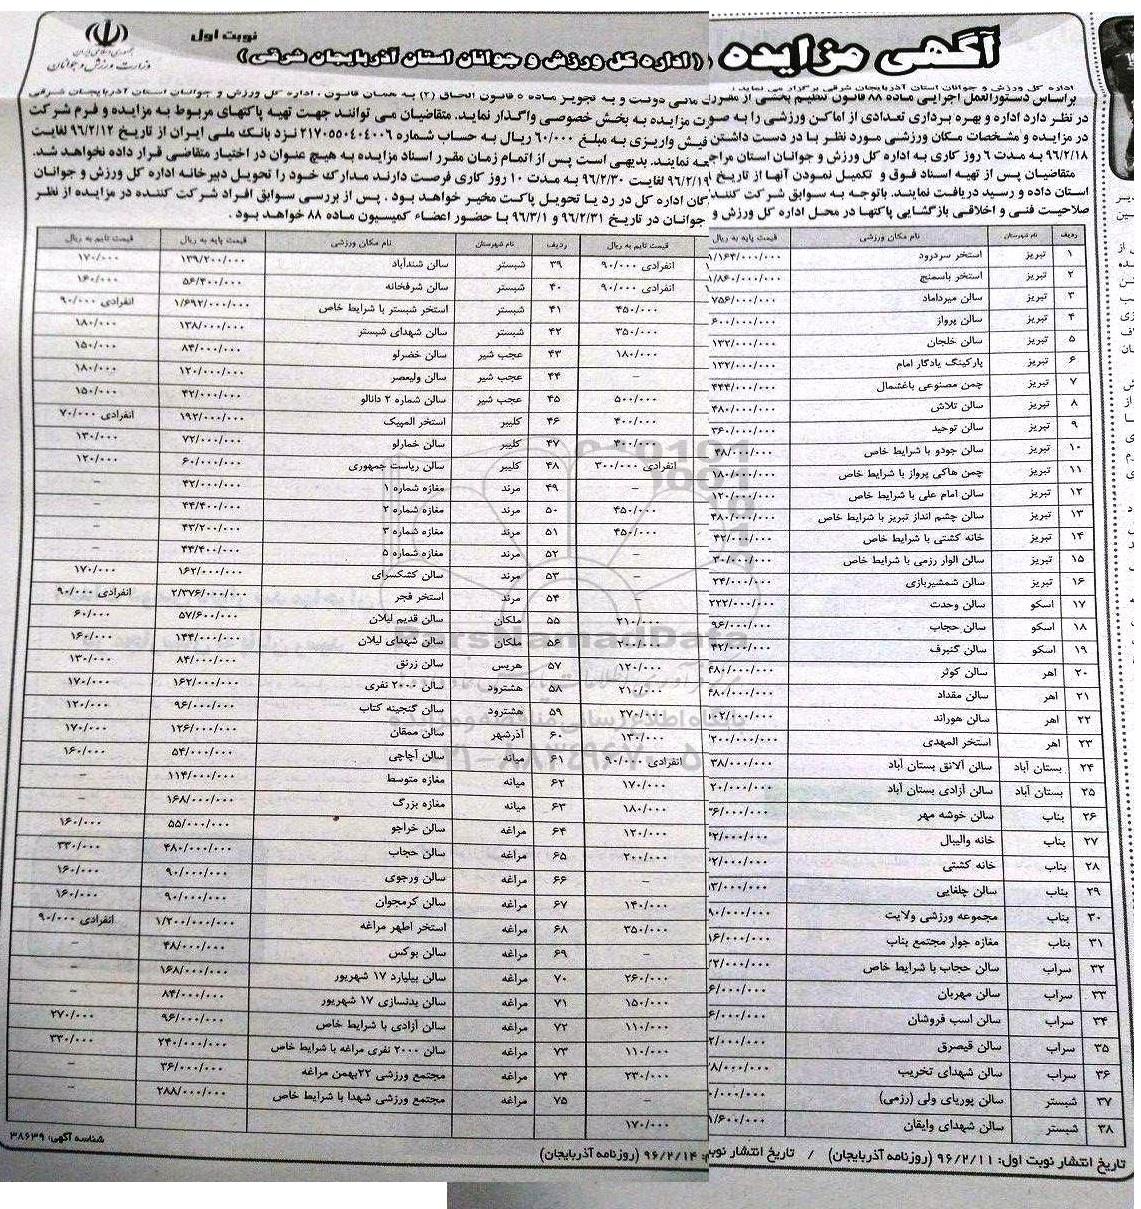 جمهوری اسلامی ایران
وزارت ورزش و جوانان
نوبت اول
آگهی مزایده
( اداره کل ورزش و جوانان استان آذربایجان شرقی )
اداره کل ورزش و جوانان استان آذربایجان شرقی برگزار می نماید
براساس دستورالعمل اجرایی ماده ۸۸ قانون تنظیم بخشی از مقررات مالی دولت و به تجویز ماده ۵ قانون الحاق (۲) به همان قانون ، اداره کل ورزش و جوانان استان آذربایجان شرقی
در نظر دارد اداره و بهره برداری تعدادی از اماکن ورزشی را به صورت مزایده به بخش خصوصی واگذار نماید. متقاضیان می توانند جهت تهیه پاکتهای مربوط به مزایده و فرم شرکت
در مزایده و مشخصات مکان ورزشی مورد نظر با در دست داشتن فیش واریزی به مبلغ ۶۰/۰۰۰ ریال به حساب شماره ۲۱۷۰۵۵۰۴۰۴۰۰۶ نزد بانک ملی ایران از تاریخ ۹۶/۲/۱۲ لغایت
۹۶/۲/۱۸ به مدت ۶ روز کاری به اداره کل ورزش و جوانان استان مراجعه نمایند. بدیهی است پس از اتمام زمان مقرر اسناد مزایده به هیچ عنوان در اختیار متقاضی قرار داده نخواهد شد.
متقاضیان پس از تهیه اسناد فوق و تکمیل نمودن آنها از تاریخ ۹۶/۲/۱۹ لغایت ۹۶/۲/۳۰ به مدت ۱۰ روز کاری فرصت دارند مدارک خود را تحویل دبیرخانه اداره کل ورزش و جوانان
استان داده و رسید دریافت نمایند. باتوجه به سوابق شرکت کنندگان اداره کل در رد یا تحویل پاکت مخیر خواهد بود . پس از بررسی سوابق افراد شرکت کننده در مزایده از نظر
صلاحیت فنی و اخلاقی بازگشایی پاکتها در محل اداره کل ورزش و جوانان در تاریخ ۹۶/۲/۳۱ و ۹۶/۳/۱ با حضور اعضاء کمیسیون ماده ۸۸ خواهد بود .
ردیف نام شهرستان نام مکان ورزشی قیمت پایه به ریال قیمت تایم به ریال
۱ تبریز استخر سردرود ۱/۱۶۴/۰۰۰/۰۰۰ انفرادی ۹۰/۰۰۰
۲ تبریز استخر باسمنج ۱/۸۶۰/۰۰۰/۰۰۰ انفرادی ۹۰/۰۰۰
۳ تبریز سالن میرداماد ۷۵۶/۰۰۰/۰۰۰ ۴۵۰/۰۰۰
۴ تبریز سالن پرواز ۶۰۰/۰۰۰/۰۰۰ ۳۵۰/۰۰۰
۵ تبریز سالن خلجان ۱۳۲/۰۰۰/۰۰۰ ۱۸۰/۰۰۰
۶ تبریز پارکینگ یادگار امام ۱۳۲/۰۰۰/۰۰۰ –
۷ تبریز چمن مصنوعی باغشمال ۴۴۴/۰۰۰/۰۰۰ ۵۰۰/۰۰۰
۸ تبریز سالن تلاش ۴۸۰/۰۰۰/۰۰۰ ۴۰۰/۰۰۰
۹ تبریز سالن توحید ۳۶۰/۰۰۰/۰۰۰ ۴۰۰/۰۰۰
۱۰ تبریز سالن جودو با شرایط خاص ۴۸/۰۰۰/۰۰۰ انفرادی ۳۰۰/۰۰۰
۱۱ تبریز چمن هاکی پرواز با شرایط خاص ۱۸۰/۰۰۰/۰۰۰ –
۱۲ تبریز سالن امام علی با شرایط خاص ۱۲۰/۰۰۰/۰۰۰ ۴۵۰/۰۰۰
۱۳ تبریز سالن چشم انداز تبریز با شرایط خاص ۴۸۰/۰۰۰/۰۰۰ ۴۵۰/۰۰۰
۱۴ تبریز خانه کشتی با شرایط خاص ۴۲/۰۰۰/۰۰۰ –
۱۵ تبریز سالن الوار رزمی با شرایط خاص ۳۰/۰۰۰/۰۰۰ –
۱۶ تبریز سالن شمشیربازی ۲۴/۰۰۰/۰۰۰ –
۱۷ اسکو سالن وحدت ۲۲۲/۰۰۰/۰۰۰ ۲۱۰/۰۰۰
۱۸ اسکو سالن حجاب ۹۶/۰۰۰/۰۰۰ ۲۰۰/۰۰۰
۱۹ اسکو سالن گنبرف ۴۲/۰۰۰/۰۰۰ ۱۲۰/۰۰۰
۲۰ اهر سالن کوثر ۴۸۰/۰۰۰/۰۰۰ ۲۱۰/۰۰۰
۲۱ اهر سالن مقداد ۴۸۰/۰۰۰/۰۰۰ ۲۷۰/۰۰۰
۲۲ اهر سالن هوراند ۱۰۲/۰۰۰/۰۰۰ ۱۳۰/۰۰۰
۲۳ اهر استخر المهدی ۲۰۰/۰۰۰/۰۰۰ انفرادی ۹۰/۰۰۰
۲۴ بستان آباد سالن آلانق بستان آباد ۳۸/۰۰۰/۰۰۰ ۱۷۰/۰۰۰
۲۵ بستان آباد سالن آزادی بستان آباد ۲۰/۰۰۰/۰۰۰ ۱۸۰/۰۰۰
۲۶ بناب سالن خوشه مهر ۳۶/۰۰۰/۰۰۰ ۱۲۰/۰۰۰
۲۷ بناب خانه والیبال ۲/۰۰۰/۰۰۰ ۲۰۰/۰۰۰
۲۸ بناب خانه کشتی ۲/۰۰۰/۰۰۰ –
۲۹ بناب سالن چلغایی ۳/۰۰۰/۰۰۰ ۱۴۰/۰۰۰
۳۰ بناب مجموعه ورزشی ولایت ۸۰/۰۰۰/۰۰۰ ۳۵۰/۰۰۰
۳۱ بناب مغازه جوار مجتمع بناب ۱۶/۰۰۰/۰۰۰ –
۳۲ سراب سالن حجاب با شرایط خاص ۲/۰۰۰/۰۰۰ ۲۶۰/۰۰۰
۳۳ سراب سالن مهربان ۶/۰۰۰/۰۰۰ ۱۵۰/۰۰۰
۳۴ سراب سالن اسب فروشان ۶/۰۰۰/۰۰۰ ۱۱۰/۰۰۰
۳۵ سراب سالن قیصرق ۲/۰۰۰/۰۰۰ ۱۱۰/۰۰۰
۳۶ سراب سالن شهدای تخریب ۸/۰۰۰/۰۰۰ ۲۳۰/۰۰۰
۳۷ شبستر سالن پوریای ولی (رزمی) ۰/۰۰۰/۰۰۰ –
۳۸ شبستر سالن شهدای وایقان ۱/۶۰۰/۰۰۰ ۱۷۰/۰۰۰
ردیف نام شهرستان نام مکان ورزشی قیمت پایه به ریال قیمت تایم به ریال
۳۹ شبستر سالن شندآباد ۱۳۹/۲۰۰/۰۰۰ ۱۷۰/۰۰۰
۴۰ شبستر سالن شرفخانه ۵۶/۴۰۰/۰۰۰ ۱۶۰/۰۰۰
۴۱ شبستر استخر شبستر با شرایط خاص ۱/۶۹۲/۰۰۰/۰۰۰ انفرادی ۹۰/۰۰۰
۴۲ شبستر سالن شهدای شبستر ۱۳۸/۰۰۰/۰۰۰ ۱۸۰/۰۰۰
۴۳ عجب شیر سالن خضرلو ۸۴/۰۰۰/۰۰۰ ۱۵۰/۰۰۰
۴۴ عجب شیر سالن ولیعصر ۱۲۰/۰۰۰/۰۰۰ ۱۸۰/۰۰۰
۴۵ عجب شیر سالن شماره ۲ دانالو ۴۲/۰۰۰/۰۰۰ ۱۵۰/۰۰۰
۴۶ کلیبر استخر المپیک ۱۹۲/۰۰۰/۰۰۰ انفرادی ۷۰/۰۰۰
۴۷ کلیبر سالن خمارلو ۷۲/۰۰۰/۰۰۰ ۱۳۰/۰۰۰
۴۸ کلیبر سالن ریاست جمهوری ۶۰/۰۰۰/۰۰۰ ۱۲۰/۰۰۰
۴۹ مرند مغازه شماره ۱ ۴۲/۰۰۰/۰۰۰ –
۵۰ مرند مغازه شماره ۲ ۴۴/۴۰۰/۰۰۰ –
۵۱ مرند مغازه شماره ۳ ۴۳/۲۰۰/۰۰۰ –
۵۲ مرند مغازه شماره ۵ ۴۴/۴۰۰/۰۰۰ –
۵۳ مرند سالن کشکسرای ۱۶۲/۰۰۰/۰۰۰ ۱۷۰/۰۰۰
۵۴ مرند استخر فجر ۲/۳۷۶/۰۰۰/۰۰۰ انفرادی ۹۰/۰۰۰
۵۵ ملکان سالن قدیم لیلان ۵۷/۶۰۰/۰۰۰ ۶۰/۰۰۰
۵۶ ملکان سالن شهدای لیلان ۱۴۴/۰۰۰/۰۰۰ ۱۶۰/۰۰۰
۵۷ هریس سالن زرنق ۸۴/۰۰۰/۰۰۰ ۱۳۰/۰۰۰
۵۸ هشترود سالن ۲۰۰۰ نفری ۱۶۲/۰۰۰/۰۰۰ ۱۷۰/۰۰۰
۵۹ هشترود سالن گنجینه کتاب ۹۶/۰۰۰/۰۰۰ ۱۲۰/۰۰۰
۶۰ آذرشهر سالن ممقان ۱۲۶/۰۰۰/۰۰۰ ۱۷۰/۰۰۰
۶۱ میانه سالن آچاچی ۵۴/۰۰۰/۰۰۰ ۱۶۰/۰۰۰
۶۲ میانه مغازه متوسط ۱۱۴/۰۰۰/۰۰۰ –
۶۳ میانه مغازه بزرگ ۱۶۸/۰۰۰/۰۰۰ –
۶۴ مراغه سالن خراجو ۵۵/۰۰۰/۰۰۰ ۱۶۰/۰۰۰
۶۵ مراغه سالن حجاب ۴۸۰/۰۰۰/۰۰۰ ۳۳۰/۰۰۰
۶۶ مراغه سالن ورجوی ۹۰/۰۰۰/۰۰۰ ۱۶۰/۰۰۰
۶۷ مراغه سالن کرمجوان ۹۰/۰۰۰/۰۰۰ ۱۶۰/۰۰۰
۶۸ مراغه استخر اطهر مراغه ۱/۲۰۰/۰۰۰/۰۰۰ انفرادی ۹۰/۰۰۰
۶۹ مراغه سالن بوکس ۴۸/۰۰۰/۰۰۰ –
۷۰ مراغه سالن بیلیارد ۱۷ شهریور ۱۶۸/۰۰۰/۰۰۰ –
۷۱ مراغه سالن بدنسازی ۱۷ شهریور ۸۴/۰۰۰/۰۰۰ –
۷۲ مراغه سالن آزادی با شرایط خاص ۹۶/۰۰۰/۰۰۰ ۲۷۰/۰۰۰
۷۳ مراغه سالن ۲۰۰۰ نفری مراغه با شرایط خاص ۲۴۰/۰۰۰/۰۰۰ ۳۳۰/۰۰۰
۷۴ مراغه مجتمع ورزشی ۲۲بهمن مراغه ۳۶/۰۰۰/۰۰۰ –
۷۵ مراغه مجتمع ورزشی شهدا با شرایط خاص ۲۸۸/۰۰۰/۰۰۰ –
شناسه آگهی: ۳۸۶۳۹
تاریخ انتشار نوبت اول: ۹۶/۲/۱۱ (روزنامه آذربایجان) / تاریخ انتشار نوبت ۹۶/۲/۱۴ (روزنامه آذربایجان)
ParsNamadData
پایگاه اطلاع رسانی مناقصه و مزایده